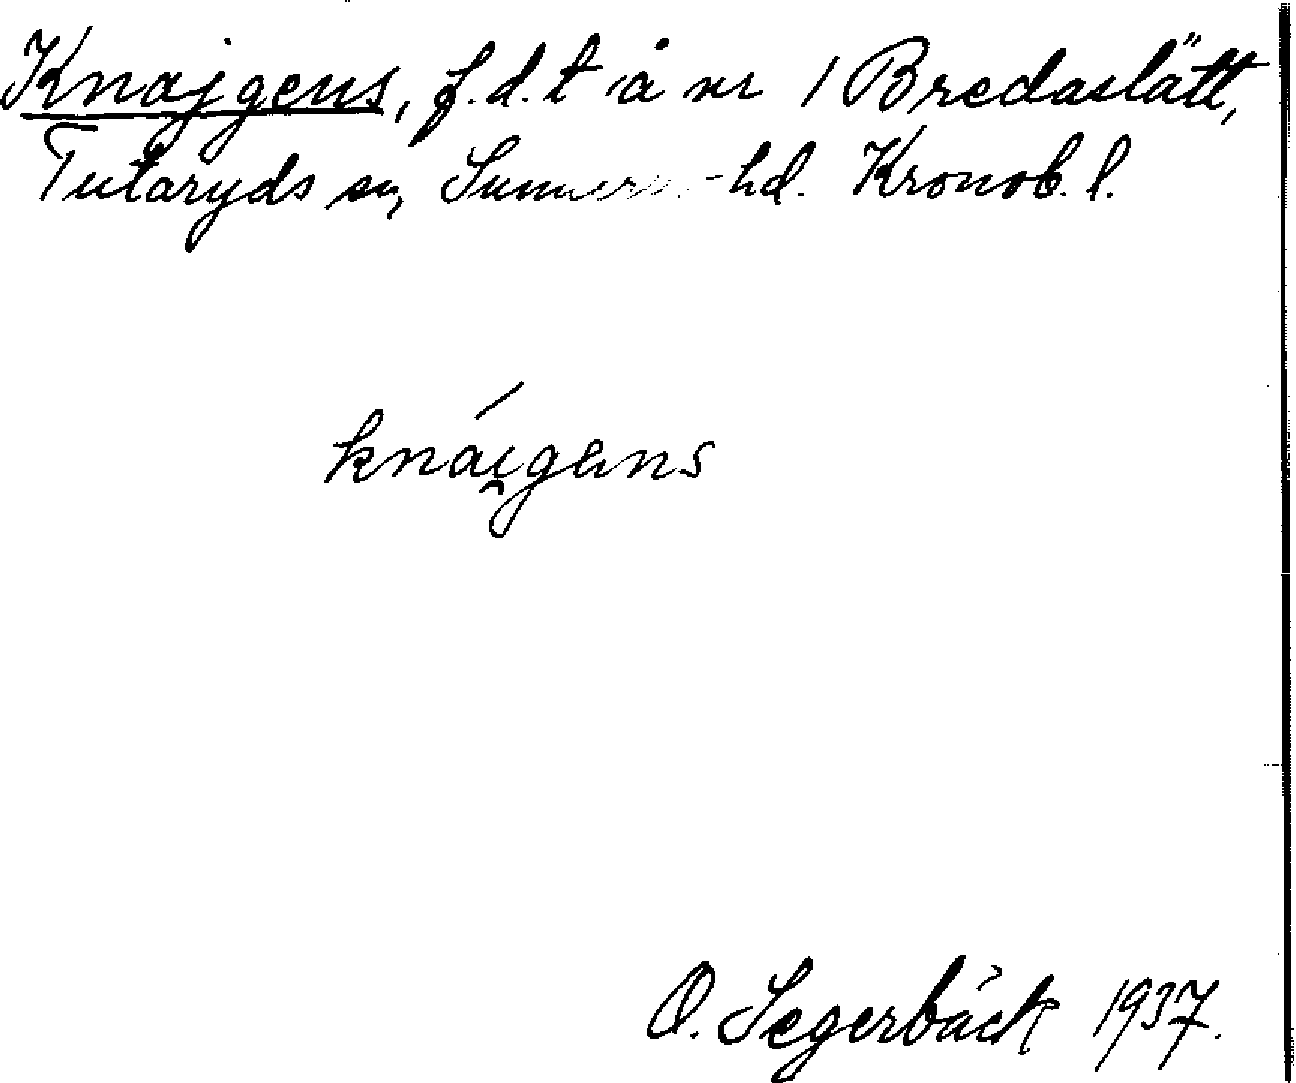 Knajgens, f.d. t å nr 1 Bredaslätt,
Tutaryds sn, hd. Kronob. l.
knái̯gens
O. Segerbäck 1937.